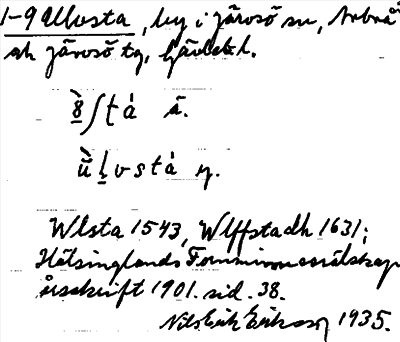 1-9 Ullvsta, by i Järvsö sn, Arbrå
och Järvsö tg, Gävleb. l.
ù l̠ v s t á y.
Ulsta 1543, Wlffstadh 1631;
Hälsinglands Fornminnessällskaps
årsskrift 1901. sid. 38.
Nils Erik Eriksson 1935.